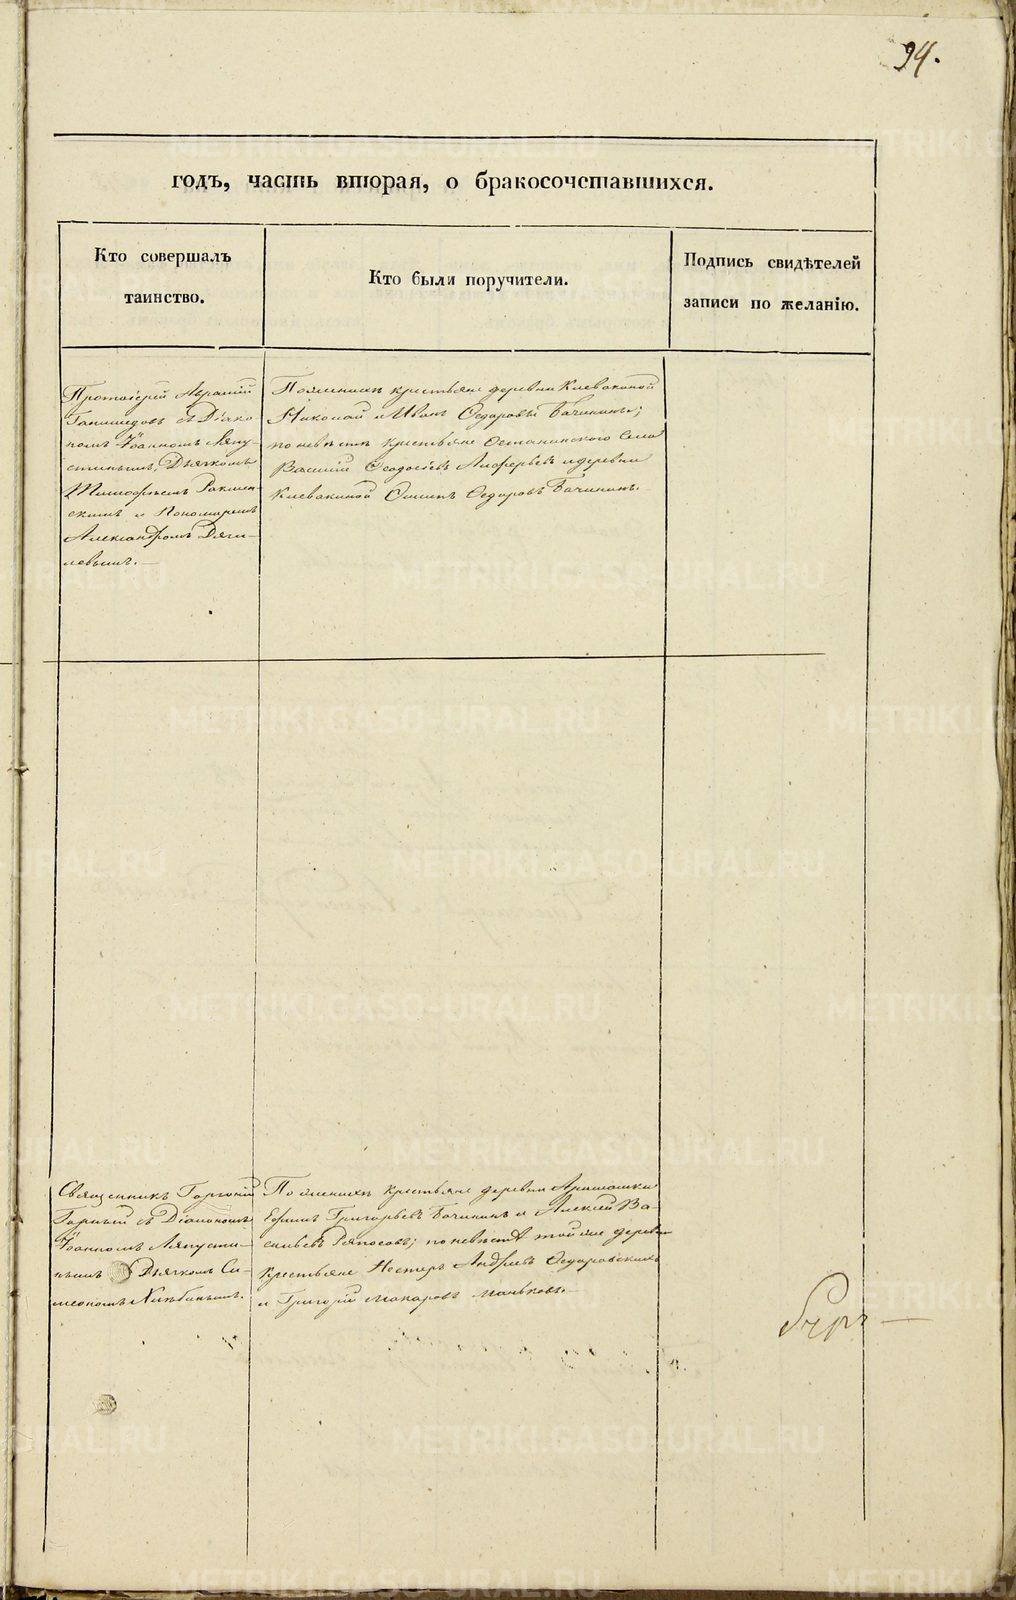 94.
годъ, часть вторая, о бракосочетавшихся.
Кто совершалъ
таинство.
Кто были поручители.
Подпись свидѣтелей
записи по желанію.
Протоіерей Авраамій
съ Діако-
номъ Іоанномъ Ляпу-
стинымъ, Дьячкомъ
Тимофеемъ
и Пономаремъ
Александромъ Дяги-
левымъ.
По женихѣ крестьяне деревни Клевакиной
Николай и Иванъ Ѳедоровы Бачинины;
по невѣстѣ крестьяне Останинскаго села
Василій Ѳеодосіевъ Алферьевъ и деревни
Клевакиной Осипъ Ѳедоровъ Бачининъ.
Священникъ Горгоній
Горный съ Діакономъ
Іоанномъ Ляпусти-
нымъ и Дьячкомъ Си-
меономъ
По женихѣ крестьяне деревни Арамашки
Ефимъ Григорьевъ Бачининъ и Алексѣй Ва-
сильевъ Ряпосовъ; по невѣстѣ той же деревни
крестьяне Нестеръ Андреевъ Ѳедоровскихъ
и Григорій Макаровъ Маньковъ.
METRIKI.GASO-URAL.RU